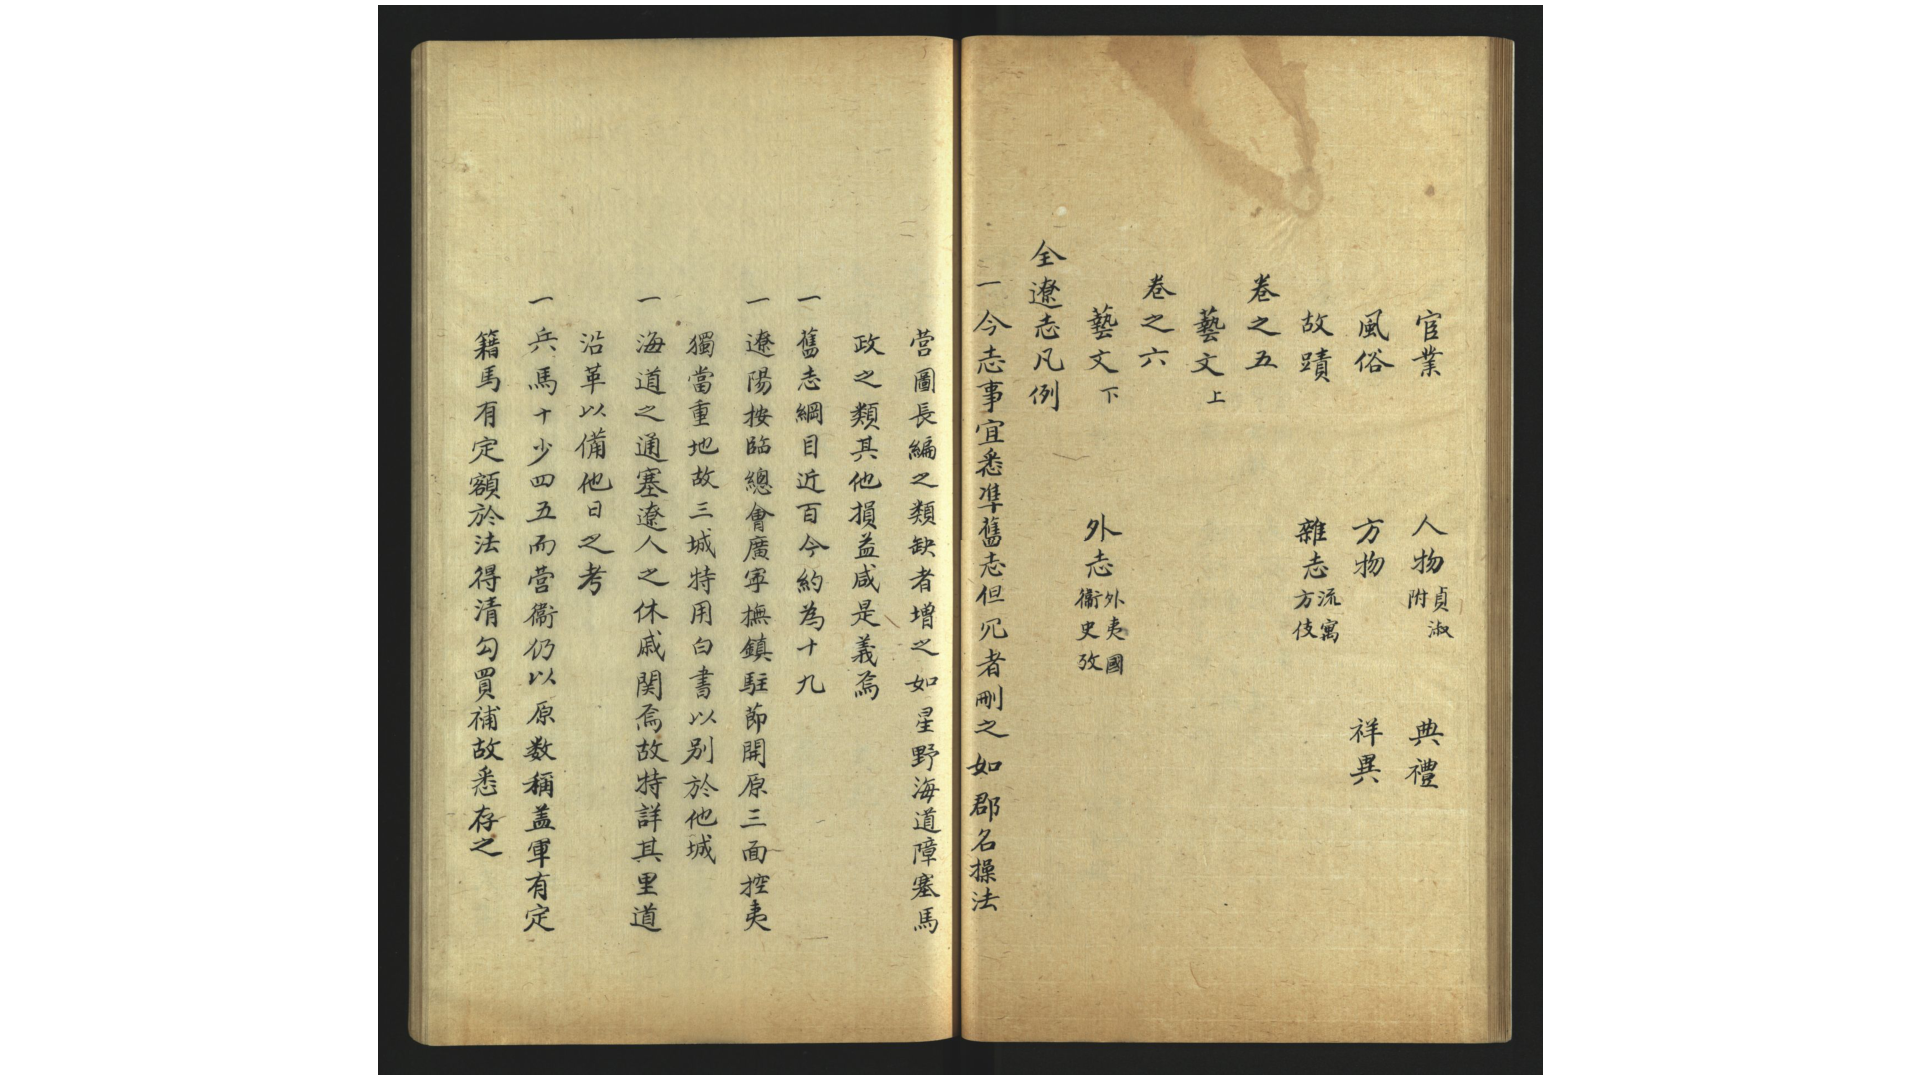 官業 人物 貞淑附 典禮
風俗 方物 祥異
故蹟 雜志 流寓方伎
卷之五
藝文 上
卷之六
藝文 下 外志 外夷國衞史攷
全遼志凡例
一今志事宜悉準舊志但冗者刪之如郡名操法
营圖長編之類缺者增之如星野海道障塞馬
政之類其他損益咸是義焉
一舊志綱目近百今約為十九
一遼陽按臨總會廣寧撫鎮駐節開原三面控夷
獨當重地故三城特用白書以別於他城
一海道之通塞遼人之休戚関焉故特詳其里道
沿革以備他日之考
一兵馬十少四五而营衞仍以原数稱盖軍有定
籍馬有定額於法得清勾買補故悉存之